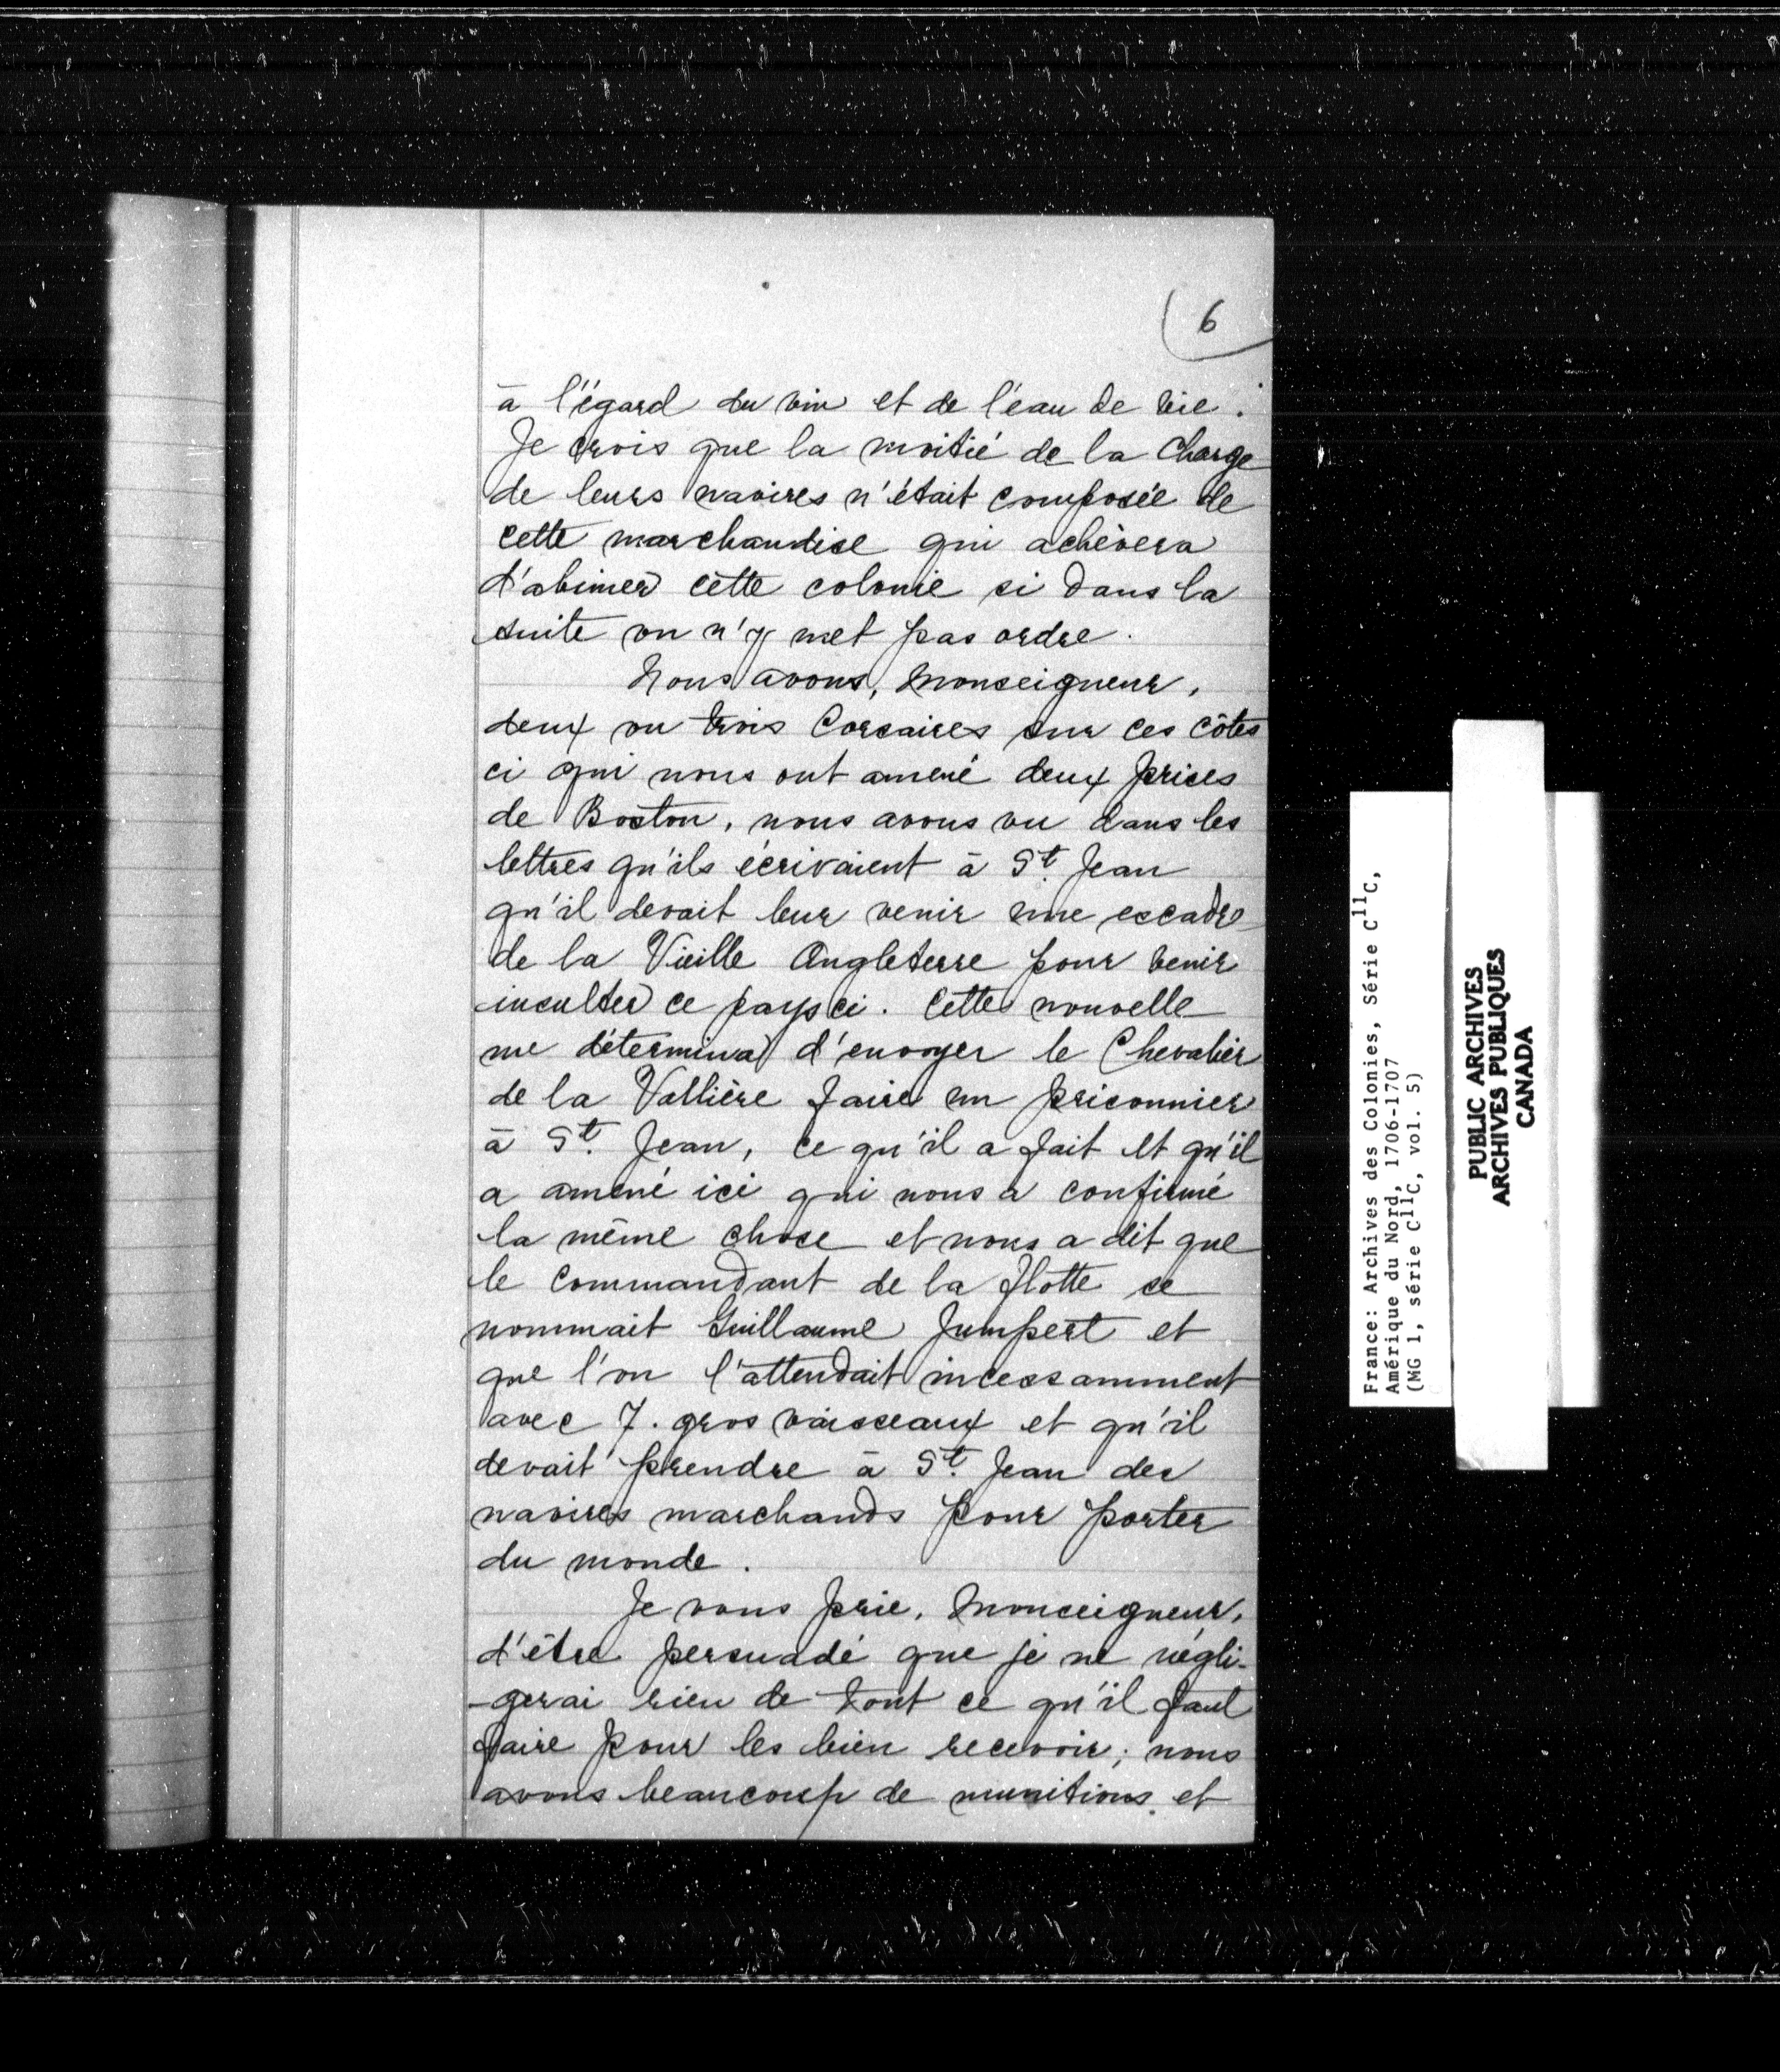 6
à l'égard du vin et de l'eau de vie.
Je crois que la moitié de la charge
de leurs navires n'était composée de
cette marchandise qui achèvera
d'abimer cette colonie si dans la
suite on n'y met pas ordre.
Nous avons, Monseigneur,
deux ou trois Corsaires sur ces côtes
ci qui nous ont amené deux prises
de Boston, nous avons vu dans les
lettres qu'ils écrivaient à St. Jean
qu'il devait leur venir une escadre
de la Vieille Angleterre pour venir
insulter ce pays ci. Cette nouvelle
me détermina d'envoyer le Chevalier
de la Vallière faire un prisonnier
à St. Jean, ce qu'il a fait et qu'il
a amené ici qui nous a confirmé
la même chose et nous a dit que
le Commandant de la flotte se
nommait Guillaume Jumpert et
que l'on l'attendait incessamment
avec 7. gros vaisseaux et qu'il
devait prendre à St. Jean des
navires marchands pour porter
du monde.
Je vous prie, Monseigneur,
d'être persuadé que je ne négli-
-gerai rien de tout ce qu'il faut
faire pour les bien recevoir; nous
avons beaucoup de munitions et
France: Archives des Colonies, Série C11C,
Amérique du Nord, 1706-1707
(MG 1, série C11C, vol. 5)
PUBLIC ARCHIVES
ARCHIVES PUBLIQUES
CANADA